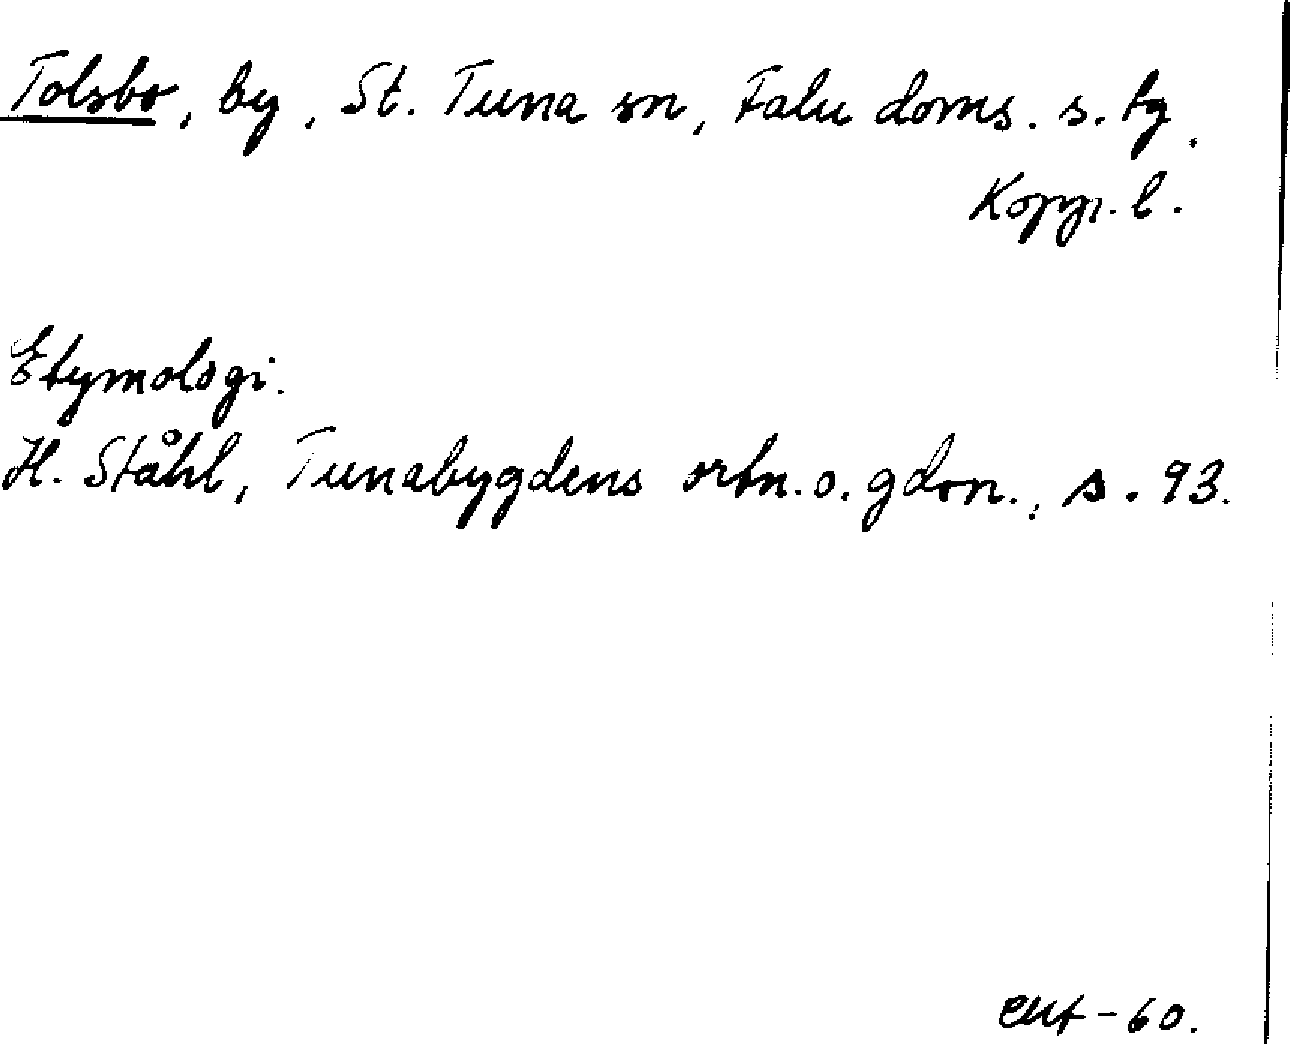 Tolsbo, by, St. Tuna sn, Falu doms. s. tg.
Kopp. l.
Etymologi.
H. Ståhl, Tunabygdens ortn. o. gdsn., s. 93.
-60.